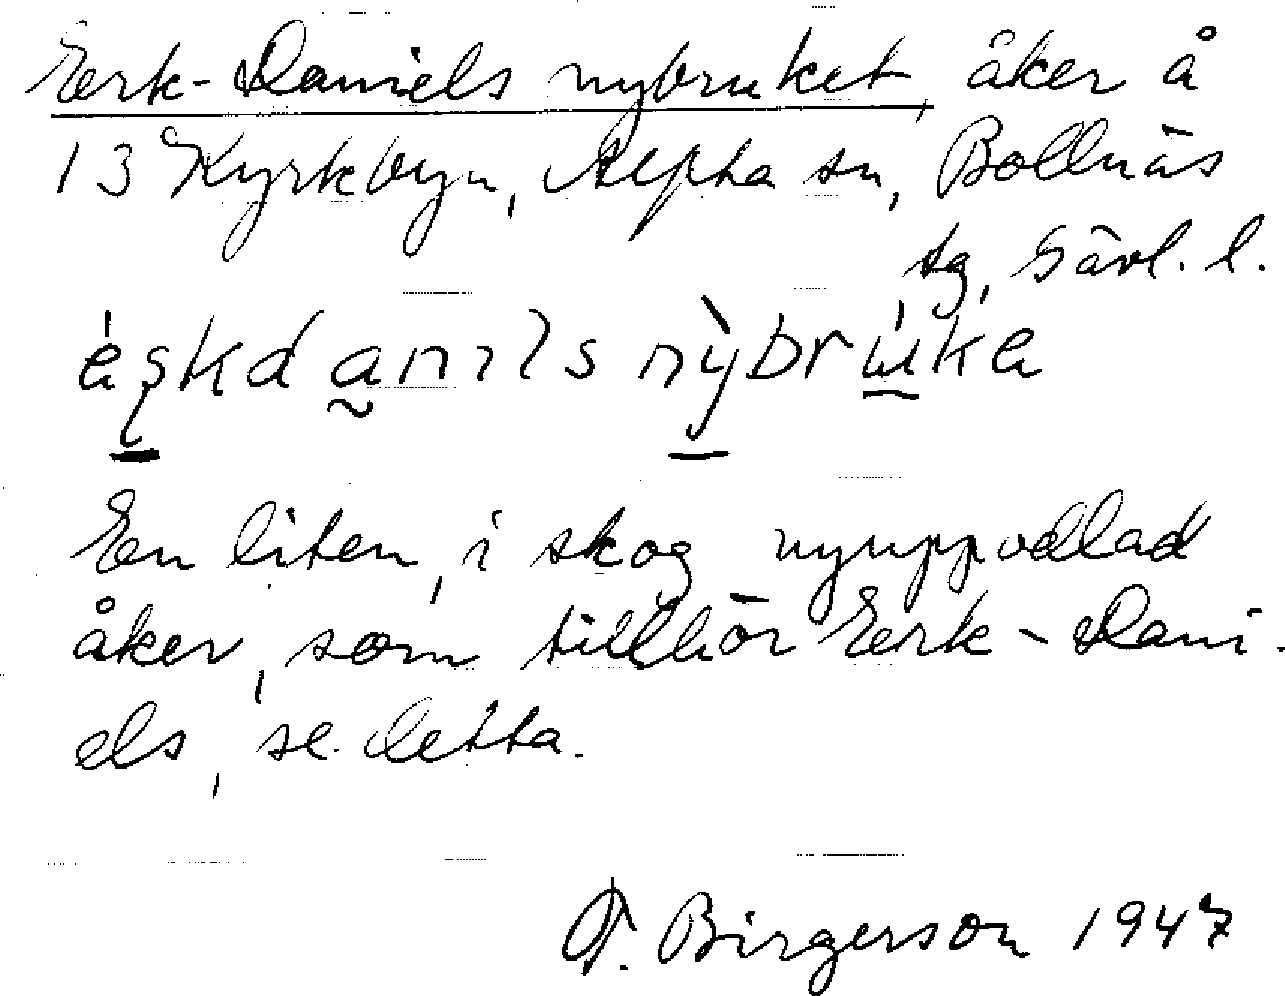 Eerk-Daniels nybruket, åker å
13 Kyrkbyn, Alfta sn, Bollnäs
tg, Gävl. l.
En liten, i skog nyuppodlad
åker, som tillhör Eerk-Dani-
els, se detta.
F. Birgerson 1947